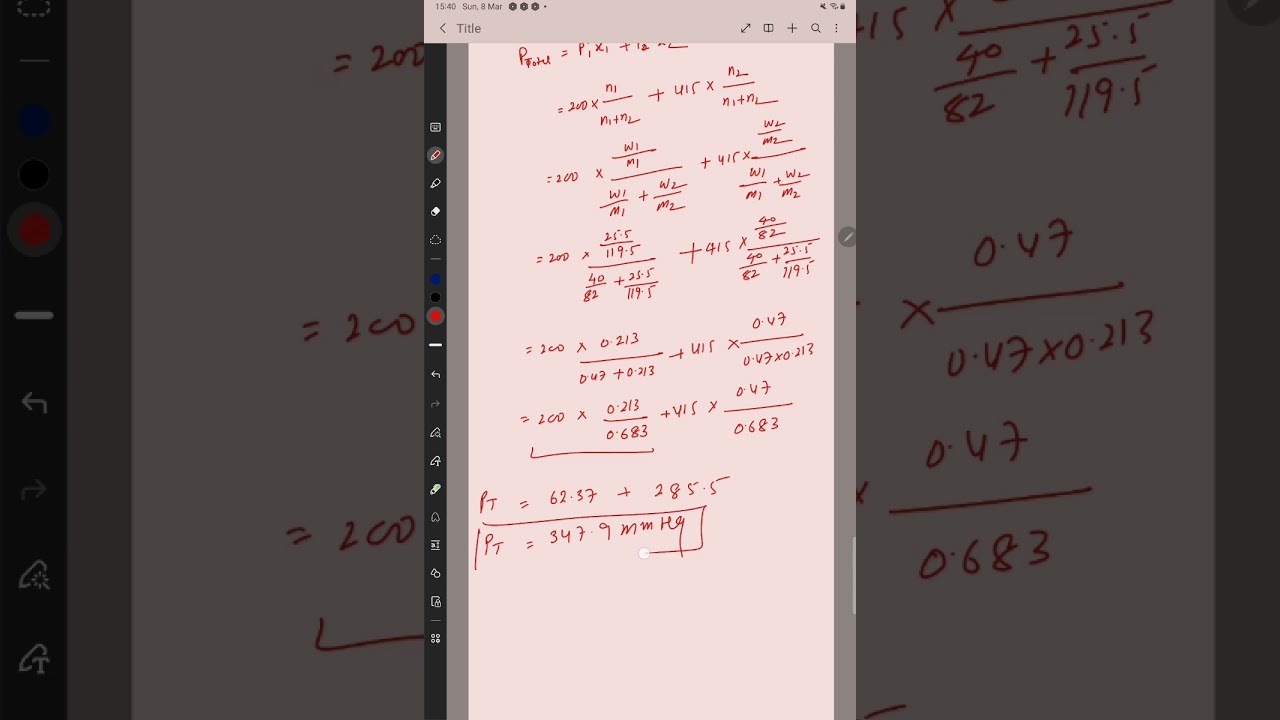 15:40 Sun, 8 Mar
Title
P_Total = P₁x₁ + P₂x₂
= 200 × n₁/(n₁+n₂) + 415 × n₂/(n₁+n₂)
= 200 × (w₁/m₁)/(w₁/m₁ + w₂/m₂) + 415 × (w₂/m₂)/(w₁/m₁ + w₂/m₂)
= 200 × (25.5/119.5)/(40/82 + 25.5/119.5) + 415 × (40/82)/(40/82 + 25.5/119.5)
= 200 × 0.213/(0.47 + 0.213) + 415 × 0.47/(0.47 × 0.213)
= 200 × 0.213/0.683 + 415 × 0.47/0.683
P_T = 62.37 + 285.5
P_T = 347.9 mm Hg